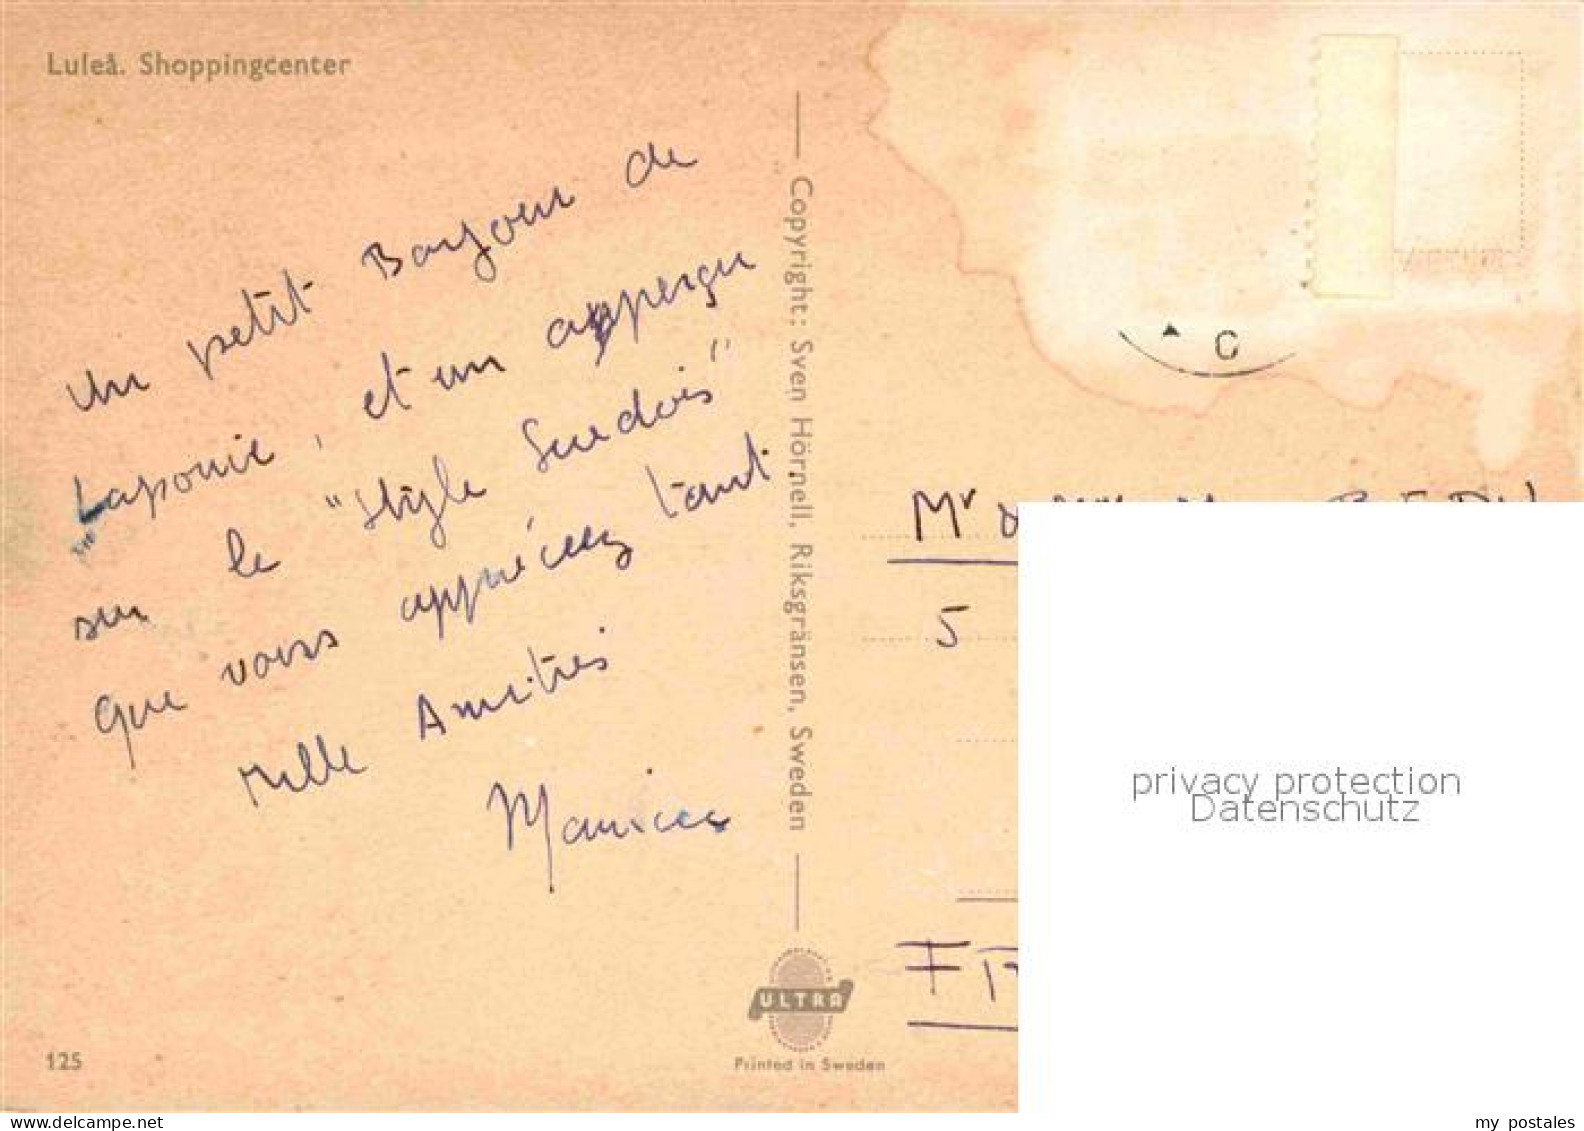 Luleå. Shoppingcenter
Un petit Bonjour de
Laponie, et un apperçu
sur le "style Suedois"
que vous appréciez tant
Mille Amitiés
Maurice
Copyright: Sven Hörnell, Riksgränsen, Sweden
C
Mr &
5
F
privacy protection
Datenschutz
ULTRA
Printed in Sweden
125
www.delcampe.net
my postales